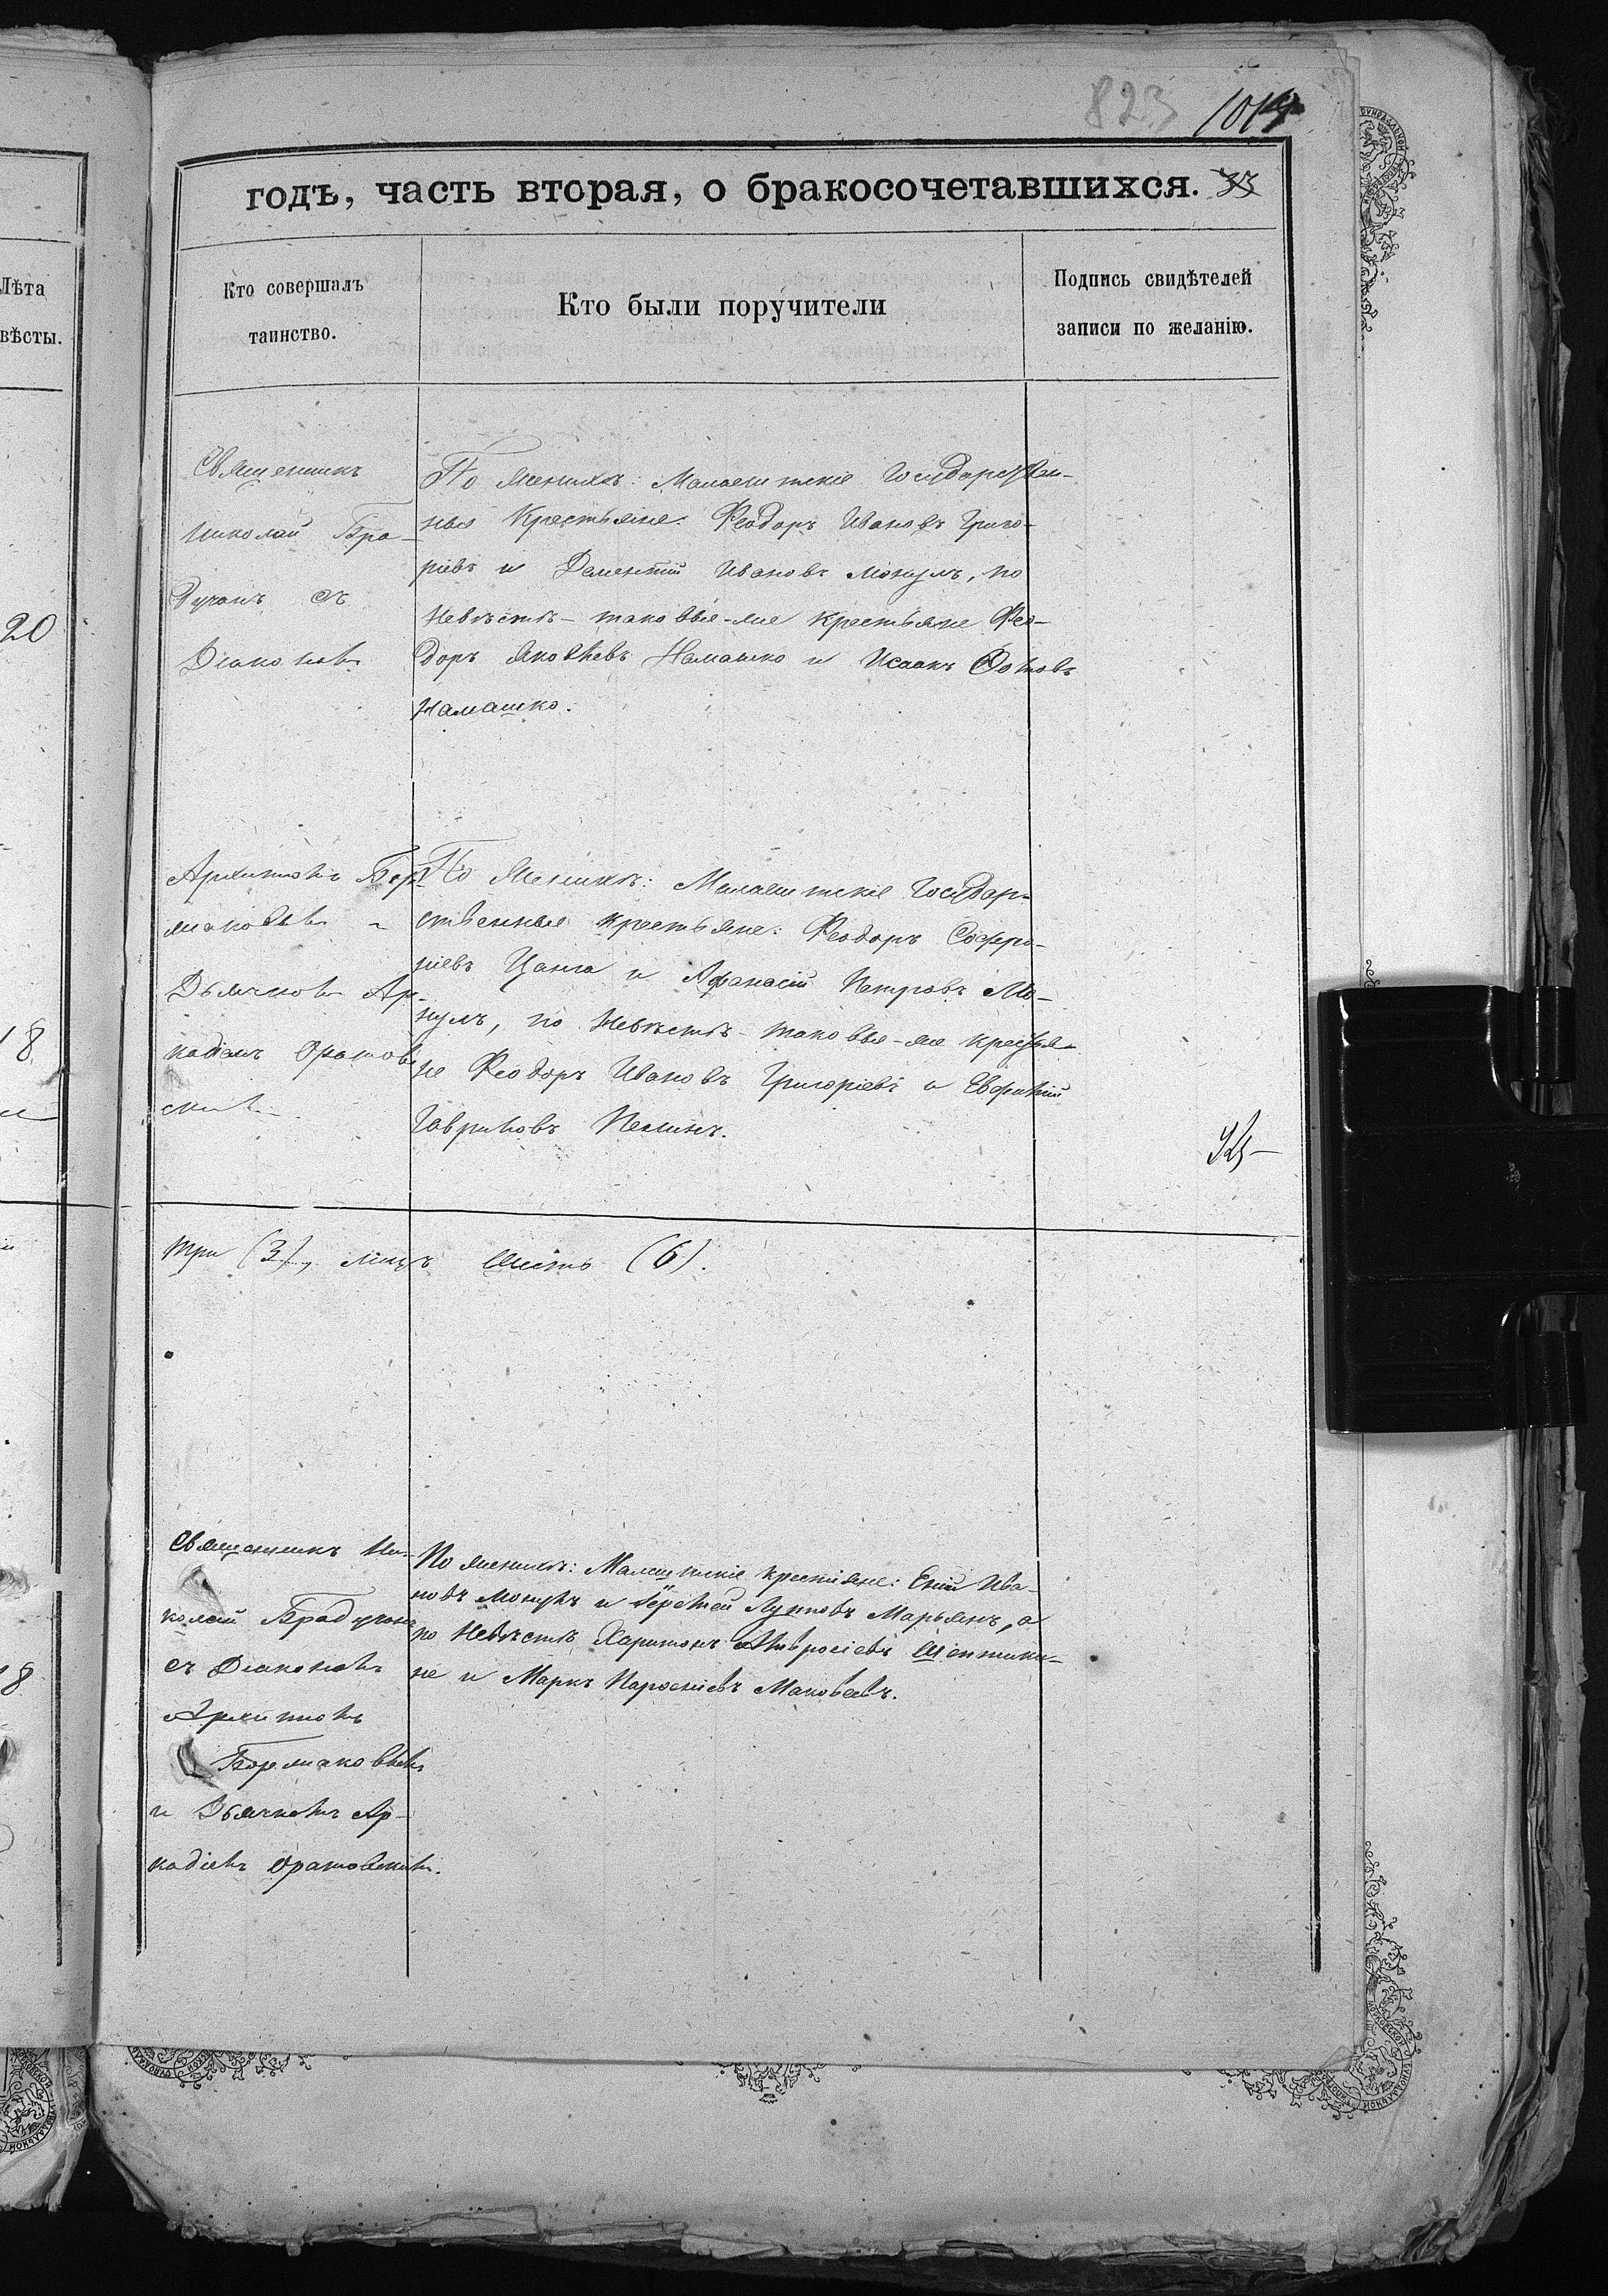 823 1014
годъ, часть вторая, о бракосочетавшихся. 33
Лѣта
вѣсты.
Кто совершалъ
таинство.
Кто были поручители
Подпись свидѣтелей
записи по желанію.
Священникъ
Николай Бра-
дучанъ съ
Діакономъ
По женихѣ: Малаештскіе Государствен-
ные Крестьяне: Феодоръ Ивановъ Григо-
ріевъ и Дементій Ивановъ Мокулъ, по
Невѣстѣ - таковые-же крестьяне Фео-
доръ Яковлевъ Намашко и Исаакъ Фотовъ
Намашко.
20
Архипомъ Бор-
маковымъ и
Дьячкомъ Ар-
кадіемъ Оратов-
скимъ.
По Женихѣ: Малаештскіе Государ-
ственные крестьяне: Феодоръ Софро-
ніевъ Цанга и Афанасій Петровъ Мо-
кулъ, по Невѣстѣ - таковые-же крестья-
не Феодоръ Ивановъ Григоріевъ и Евфимій
Гавриловъ Пелинъ.
18
три (3), лицъ шесть (6).
Священникъ Ни-
колай Брадучанъ
съ Діакономъ
Архипомъ
Бормаковымъ
и Дьячкомъ Ар-
кадіемъ Оратовскимъ.
По женихѣ: Малештскіе крестіяне: Ива-
новъ Мокулъ и Луповъ Марьянъ, а
по Невѣстѣ Харитонъ Амвросіевъ
не и Маркъ Парѳеніевъ Маковеевъ.
18